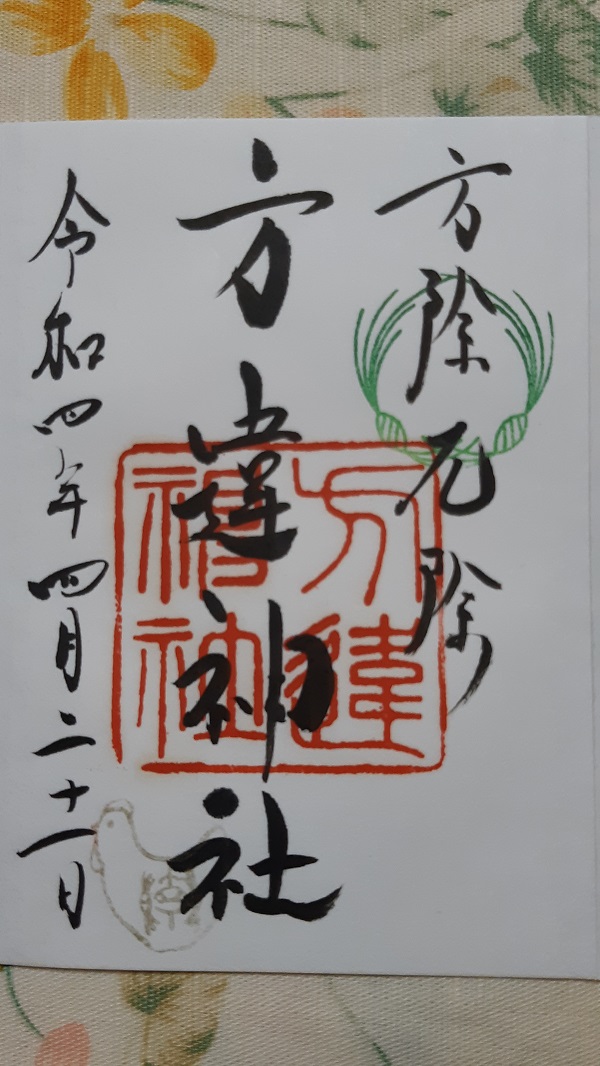 方除厄除
方違神社
令和四年四月二十一日
方違
神社